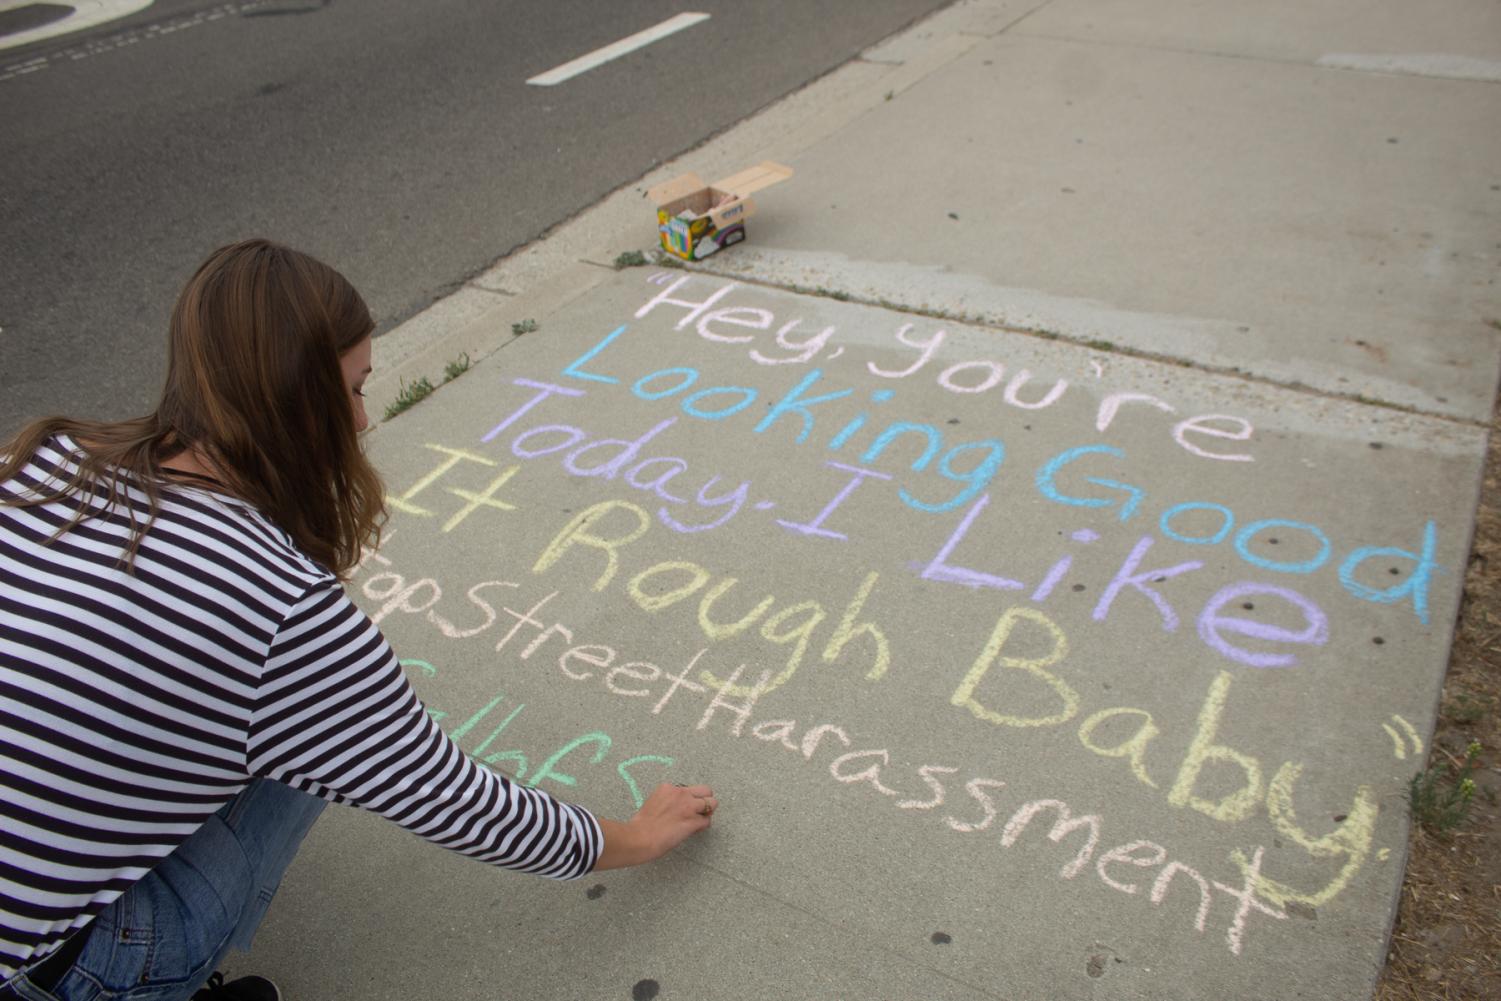 "Hey, you're
Looking Good
Today. I Like
It Rough Baby."
topStreetHarassment